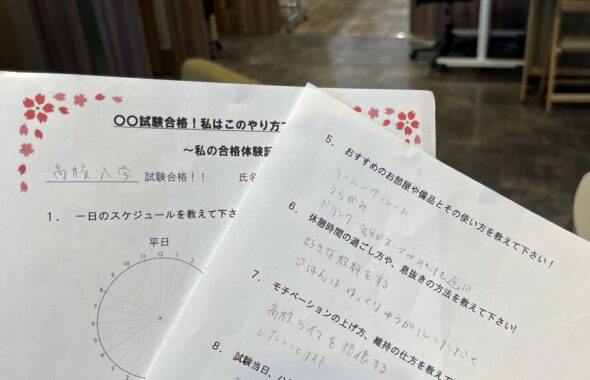 〇〇試験合格！私はこのやり方で
～私の合格体験記
高校入学 試験合格！！ 氏名
1. 一日のスケジュールを教えて下さ
平日
24
1
2
3
23
22
21
5. おすすめのお部屋や備品とその使い方を教えて下さい！
ラーニングルーム
うらがみ
ドリンク
6. 休憩時間の過ごし方や、息抜きの方法を教えて下さい！
好きな教科をする
ごはんはゆっくりゆうがにいただく
7. モチベーションの上げ方、維持の仕方を教えて
高校ライフを想像する
したいことリスト
8. 試験当日、